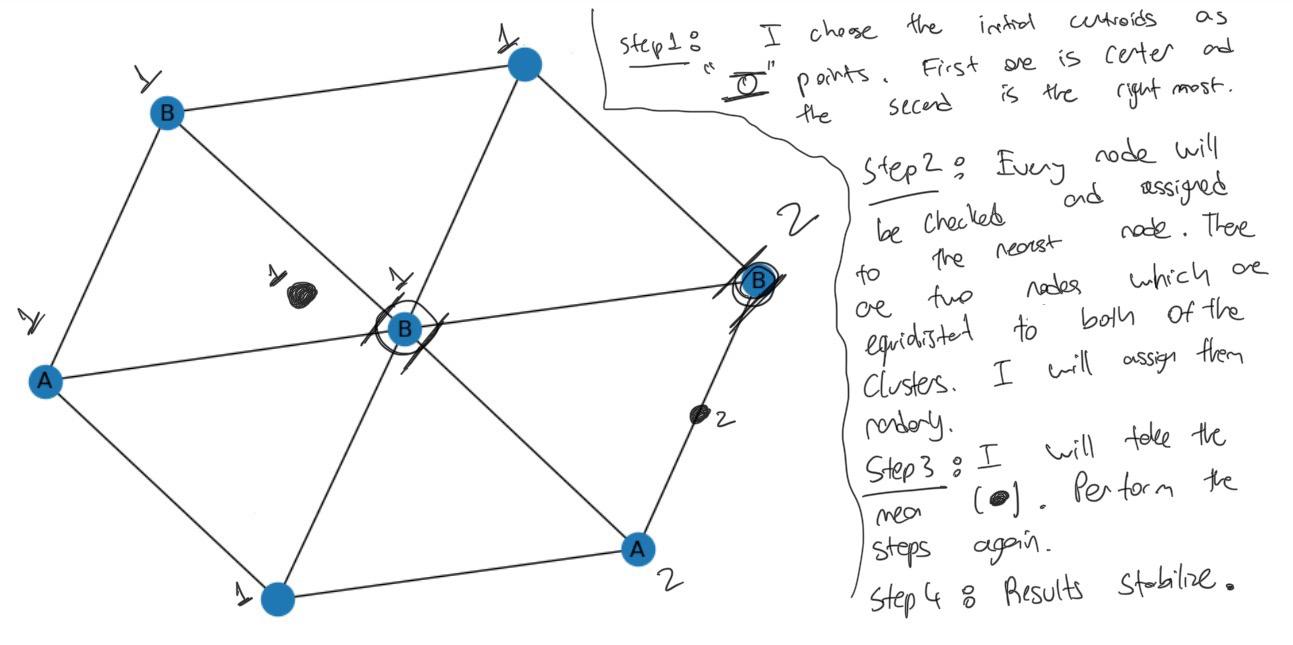 1
1
B
Step 1: I choose the initial centroids as
"O" points. First one is center and
the second is the right most.
Step 2: Every node will
be checked and assigned
to the nearest node. There
are two nodes which are
equidisted to both of the
clusters. I will assign them
randomly.
Step 3: I will take the
mean (●). Perform the
steps again.
Step 4: Results stabilize.
2
B
1
1
B
1
A
2
A
2
1